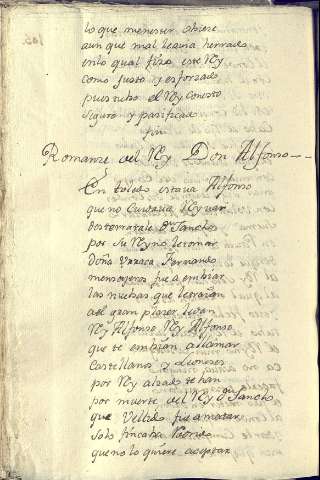 lo que menester obiere
aun que mal le avia herrado
en lo qual fizo este Rey
como justo y esforzado
pues tubo el Rey con esto
seguro y pacificado
fin
Romanze del Rey Don Alfonso
En toledo estava Alfonso
que no Cuidava Reynar
desterrarale Dn Sancho
por su Reyno le tomar
Doña Urraca Fernando
mensageros fue a embiar
las nuebas que le traian
a el gran placer le dan
Rey Alfonso Rey Alfonso
que te embian a llamar
Castellanos y Leoneses
por Rey alzado te han
por muerte del Rey Dn Sancho
que Vellido fue a matar
solo fincaba Rodrigo
que no lo quiere aceptar